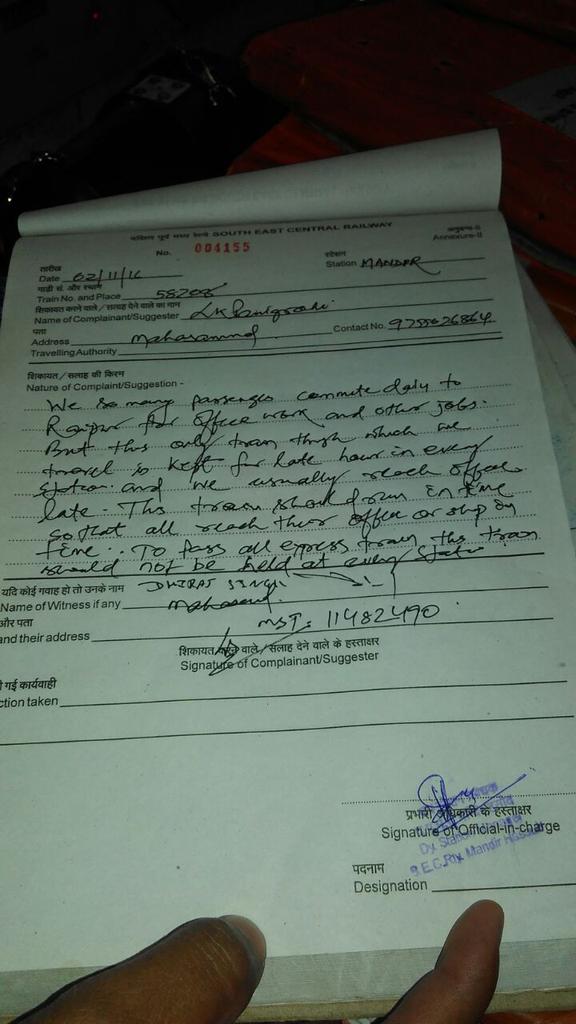 दक्षिण पूर्व मध्य रेलवे SOUTH EAST CENTRAL RAILWAY
अनुबन्ध-II
Annexure-II
No. 004155
तारीख
Date 02/11/16
स्टेशन
Station MANDER
गाड़ी सं. और स्थान
Train No. and Place 58208
शिकायत करने वाले / सलाह देने वाले का नाम
Name of Complainant/Suggester
पता
Address Mahasamund Contact No.
Travelling Authority
शिकायत / सलाह की किस्म
Nature of Complaint/Suggestion -
We so many passenges commute daly to
Raipur for office work and other jobs.
But this only train thrgh which we
travel is kept for late hour in every
station and we usually reach office
late. This train should run in time
so that all reach their office or shop in
time.. To pass all express train this train
should not be held at every station
यदि कोई गवाह हो तो उनके नाम DHIRAJ SINGH
Name of Witness if any
और पता
and their address MST: 11482490
शिकायत करने वाले / सलाह देने वाले के हस्ताक्षर
Signature of Complainant/Suggester
ी गई कार्यवाही
ction taken
प्रभारी अधिकारी के हस्ताक्षर
Signature of Official-in-charge
S.E.C.Rly. Mandir
पदनाम
Designation